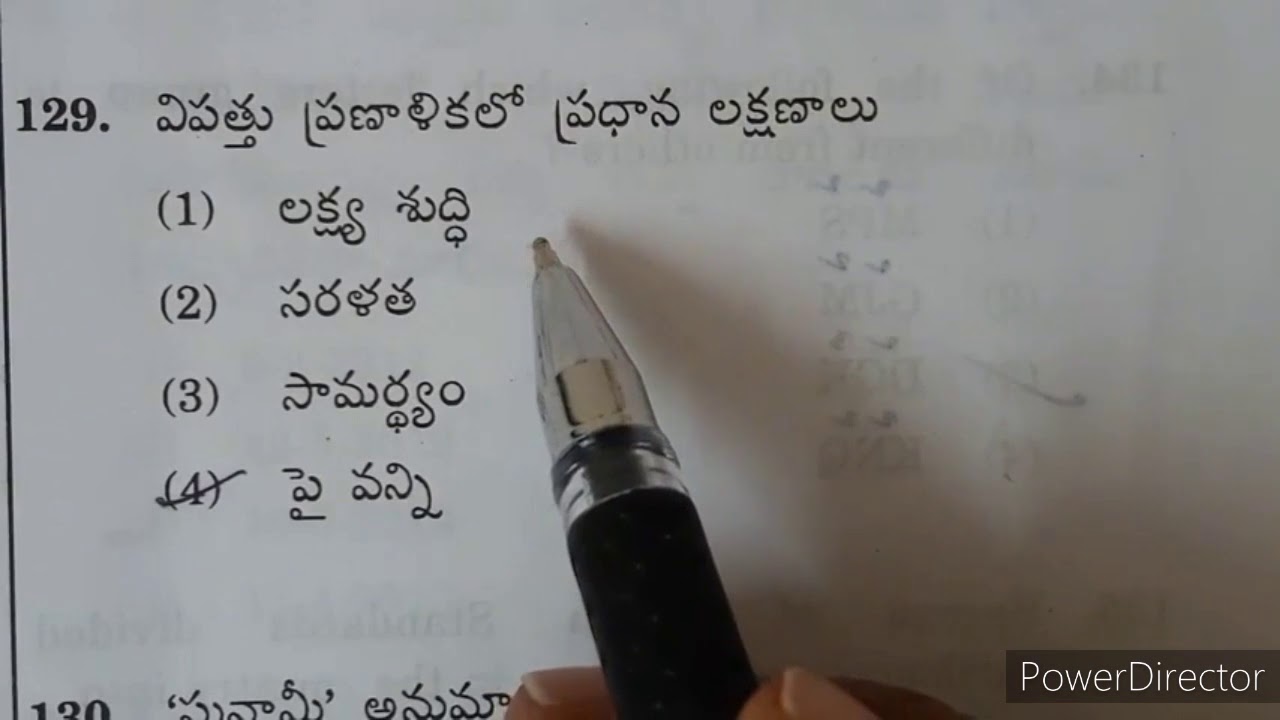 129. విపత్తు ప్రణాళికలో ప్రధాన లక్షణాలు
(1) లక్ష్య శుద్ధి
(2) సరళత
(3) సామర్థ్యం
(4) పై వన్ని
130. 'సునామీ'
PowerDirector